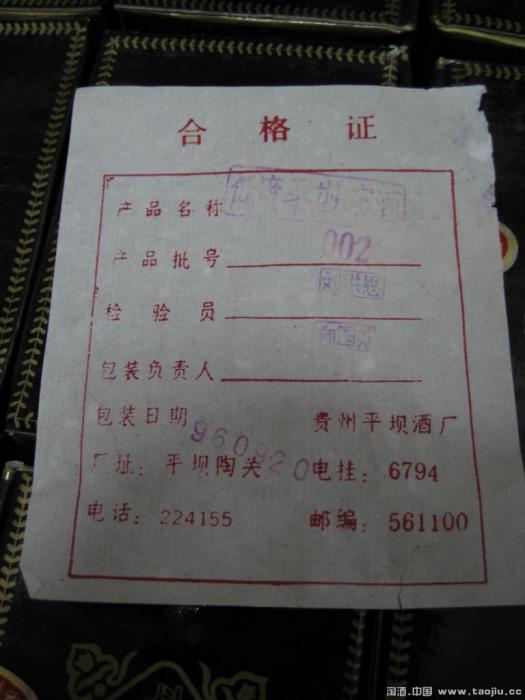 合格证
产品名称
产品批号 002
检验员
包装负责人
包装日期 960920 贵州平坝酒厂
厂址：平坝陶关 电挂：6794
电话：224155 邮编：561100
淘酒.中国 www.taojiu.cc